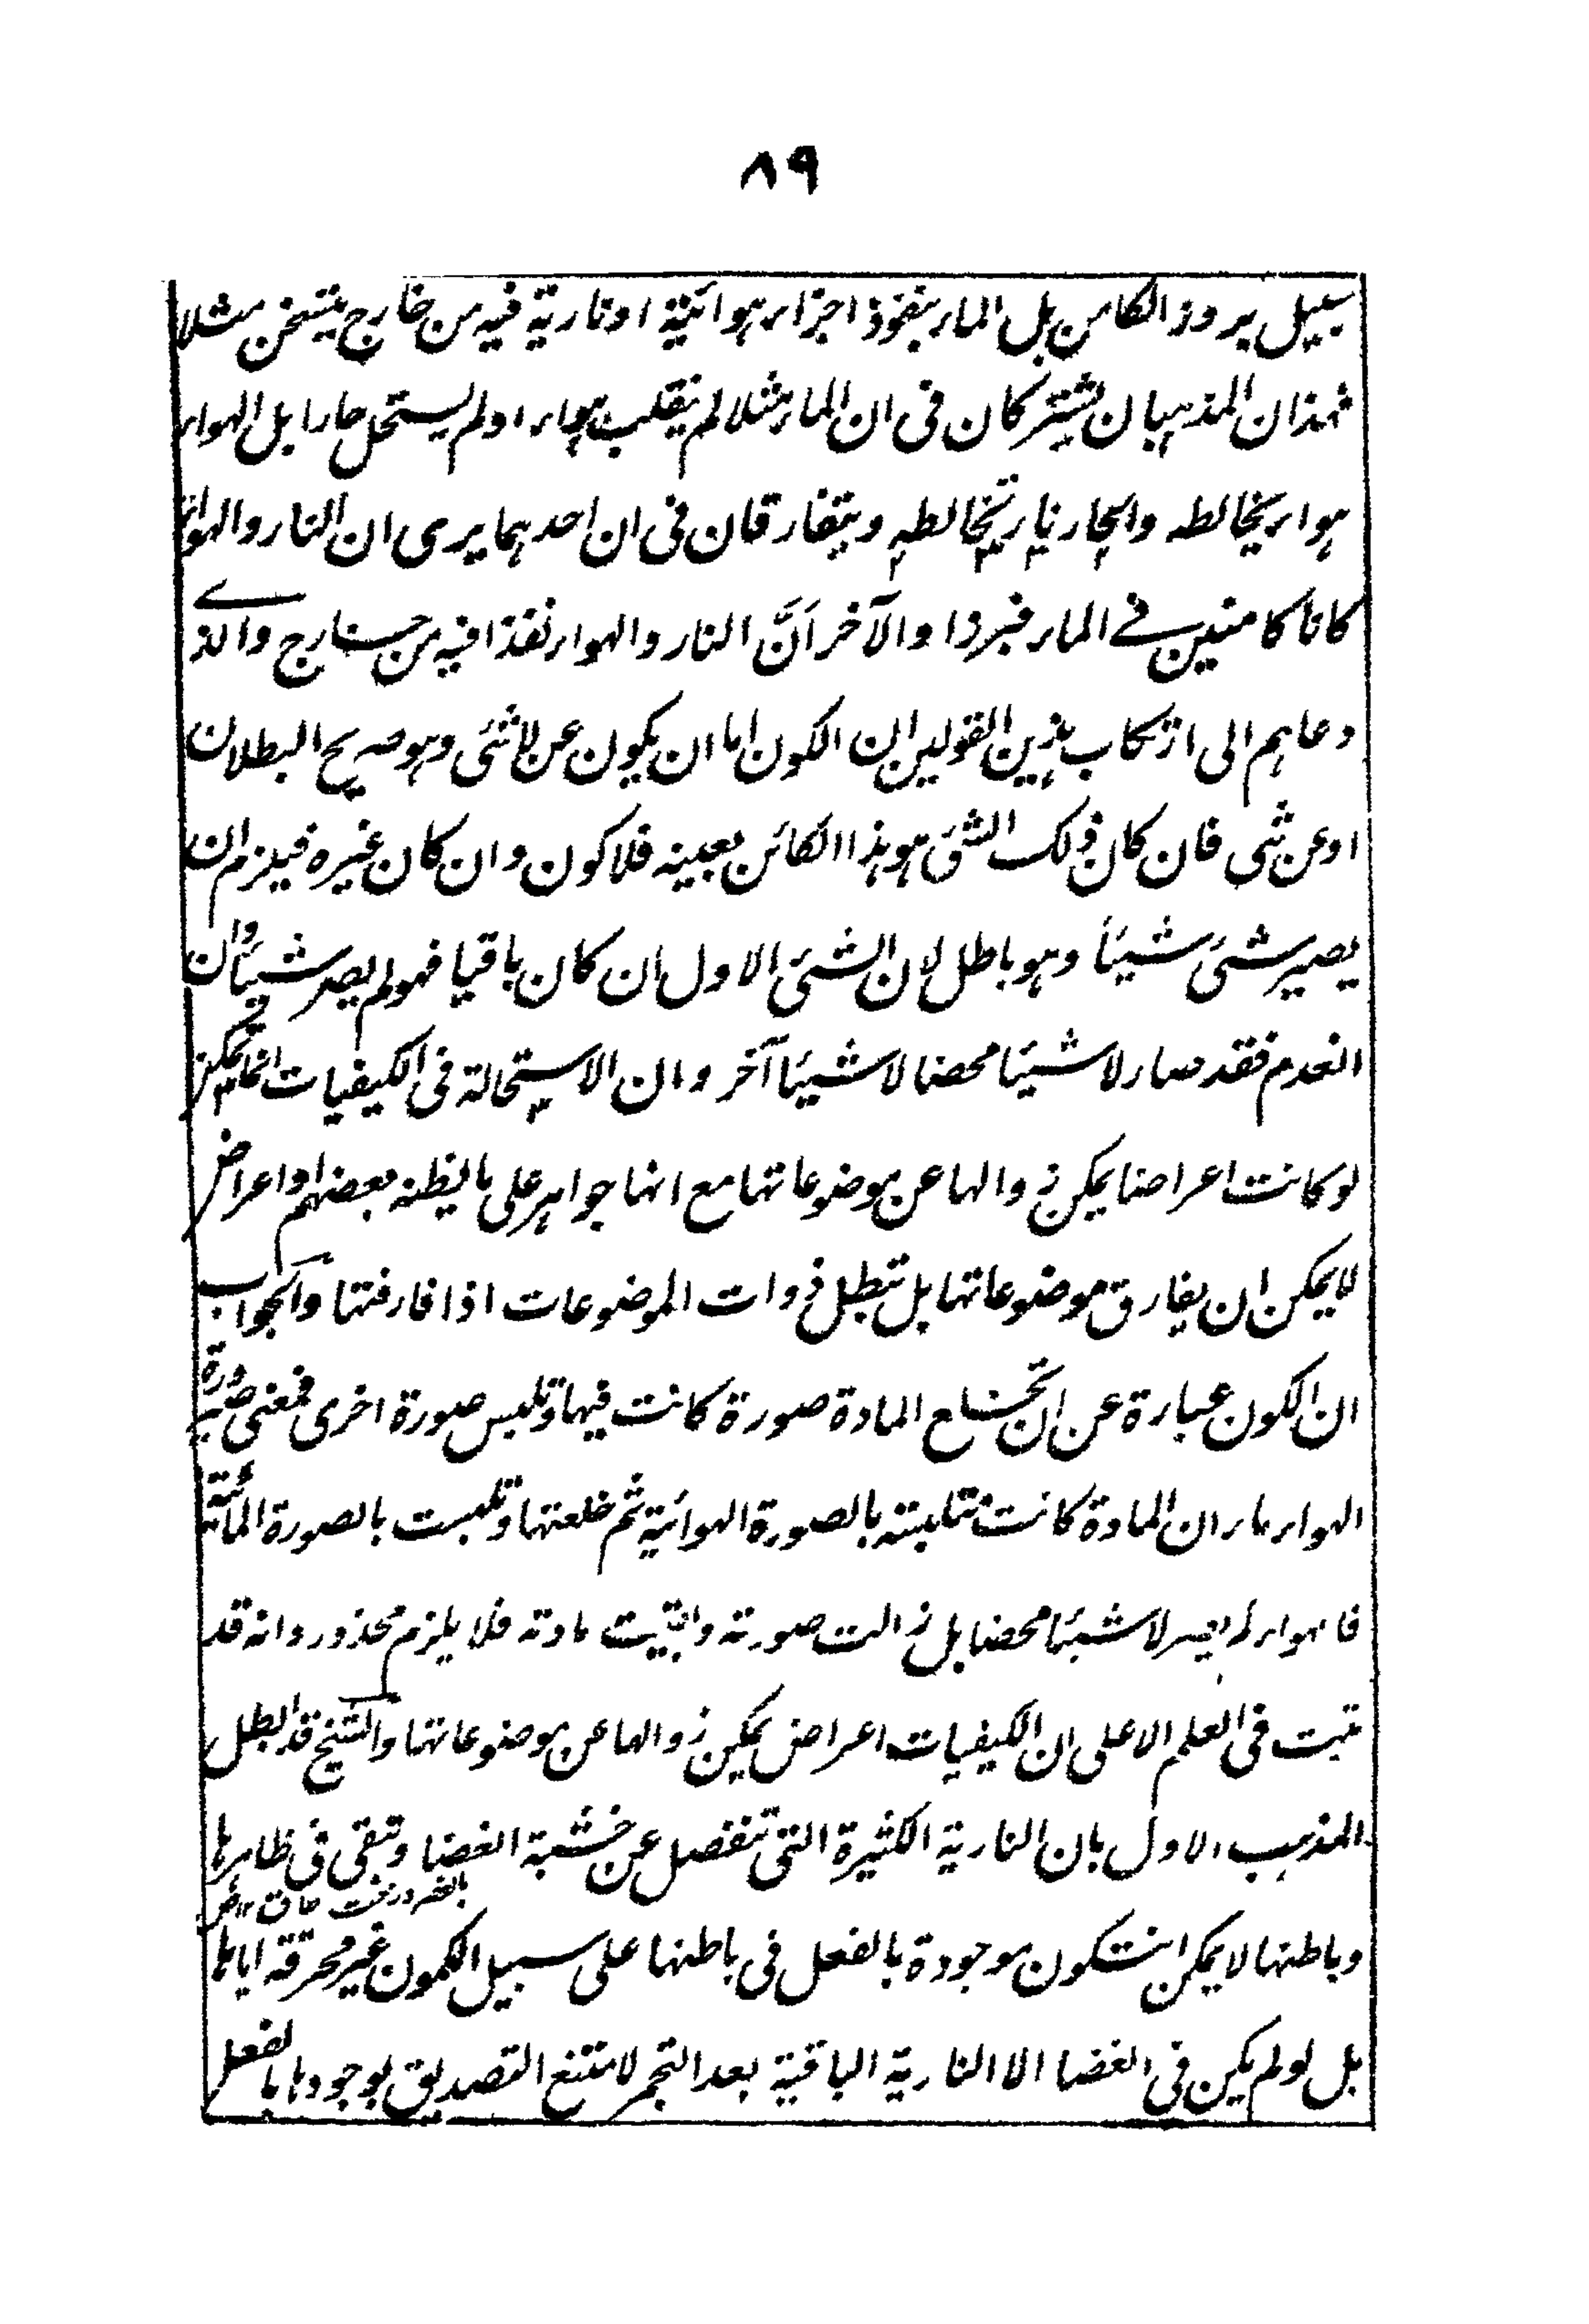 ٨٩
سبيل بروز الكامن بل الماء بنفوذ اجزاء هوائية او نارية فيه من خارج يتسخن مثلا
فهذان المذهبان يشتركان فى ان الماء مثلا لم ينقلب هواء او لم يستحل حارا بل الهواء
هواء يخالطه والحار نار تخالطه ويتفارقان فى ان احدهما يرى ان النار والهواء
كانا كامنين فے الماء فبرزا والآخر اَنَّ النار والهواء نفذا فيه من خارج والذے
دعاهم الى ارتكاب هذين القولين ان الكون اما ان يكون عن لا شئ وهو صريح البطلان
او عن شى فان كان ذلك الشئ هو هذا الكائن بعينه فلا كون وان كان غيره فيلزم ان
يصير شئ شيئاً وهو باطل لان الشئ الاول ان كان باقيا فهو لم يصر شيئا وان
انعدم فقد صار لا شيئا محضا لا شيئا آخر وان الاستحالة فى الكيفيات انما يمكن
لو كانت اعراضا يمكن زوالها عن موضوعاتها مع انها جواهر على ما يظنه بعضهم او اعراض
لا يمكن ان يفارق موضوعاتها بل تبطل ذوات الموضوعات اذا فارقتها والجواب
ان الكون عبارة عن ان تخلع المادة صورة كانت فيها وتلبس صورة اخرى فمعنى صيرورة
الهواء ماء ان المادة كانت متلبسة بالصورة الهوائية ثم خلعتها وتلبست بالصورة المائية
فالهواء لم يصر لا شيئا محضا بل زالت صورته وبقيت مادته فلا يلزم محذور وانه قد
ثبت فى العلم الاعلى ان الكيفيات اعراض يمكن زوالها عن موضوعاتها والشيخ قد ابطل
المذهب الاول بان النارية الكثيرة التى تنفصل عن خشبة الغضا وتبقى فى ظاهرها
وباطنها لا يمكن ان تكون موجودة بالفعل فى باطنها على سبيل الكمون غير محرقة اياها
بل لو لم يكن فى الغضا الا النارية الباقية بعد التجمر لامتنع التصديق بوجودها بالفعل